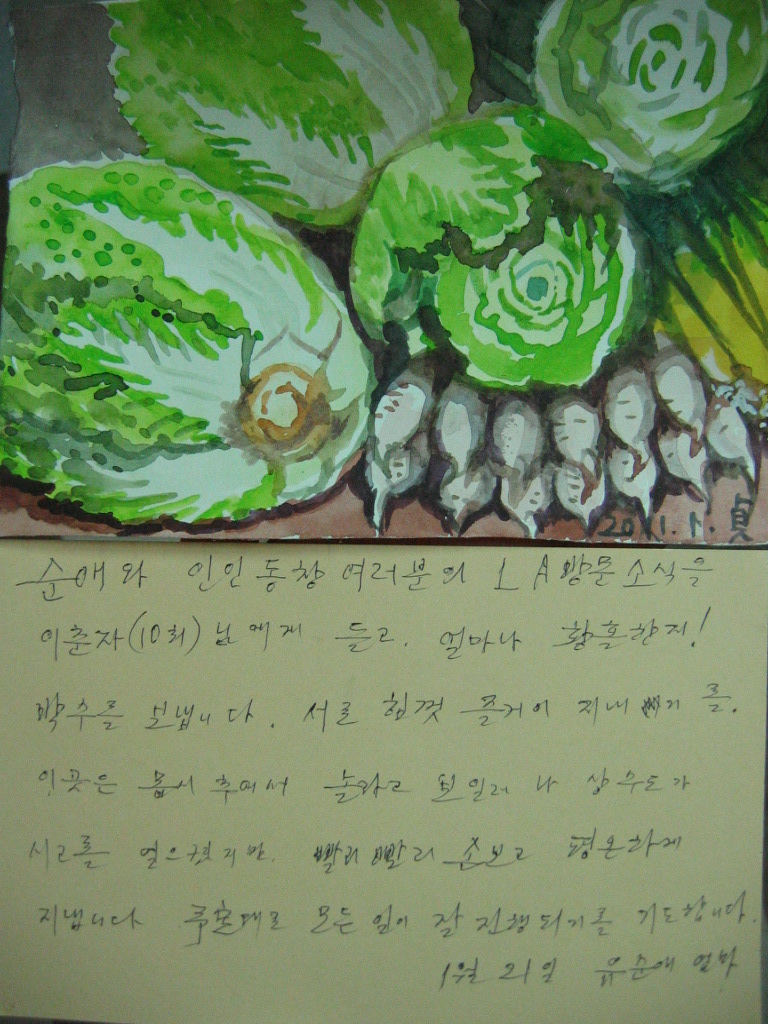 2011.1. 貞
순애와 인인동창 여러분의 LA방문소식을
이춘자(10회)님에게 듣고. 얼마나 황홀한지!
박수를 보냅니다. 서로 힘껏 즐거이 지내기를.
이곳은 몹시 추워서 놀라고 보일러나 상수도가
사고를 일으켰지만. 빨리빨리 손보고 평온하게
지냅니다 모든 일이 잘 진행되기를 기도합니다.
1월 21일 유순애 엄마